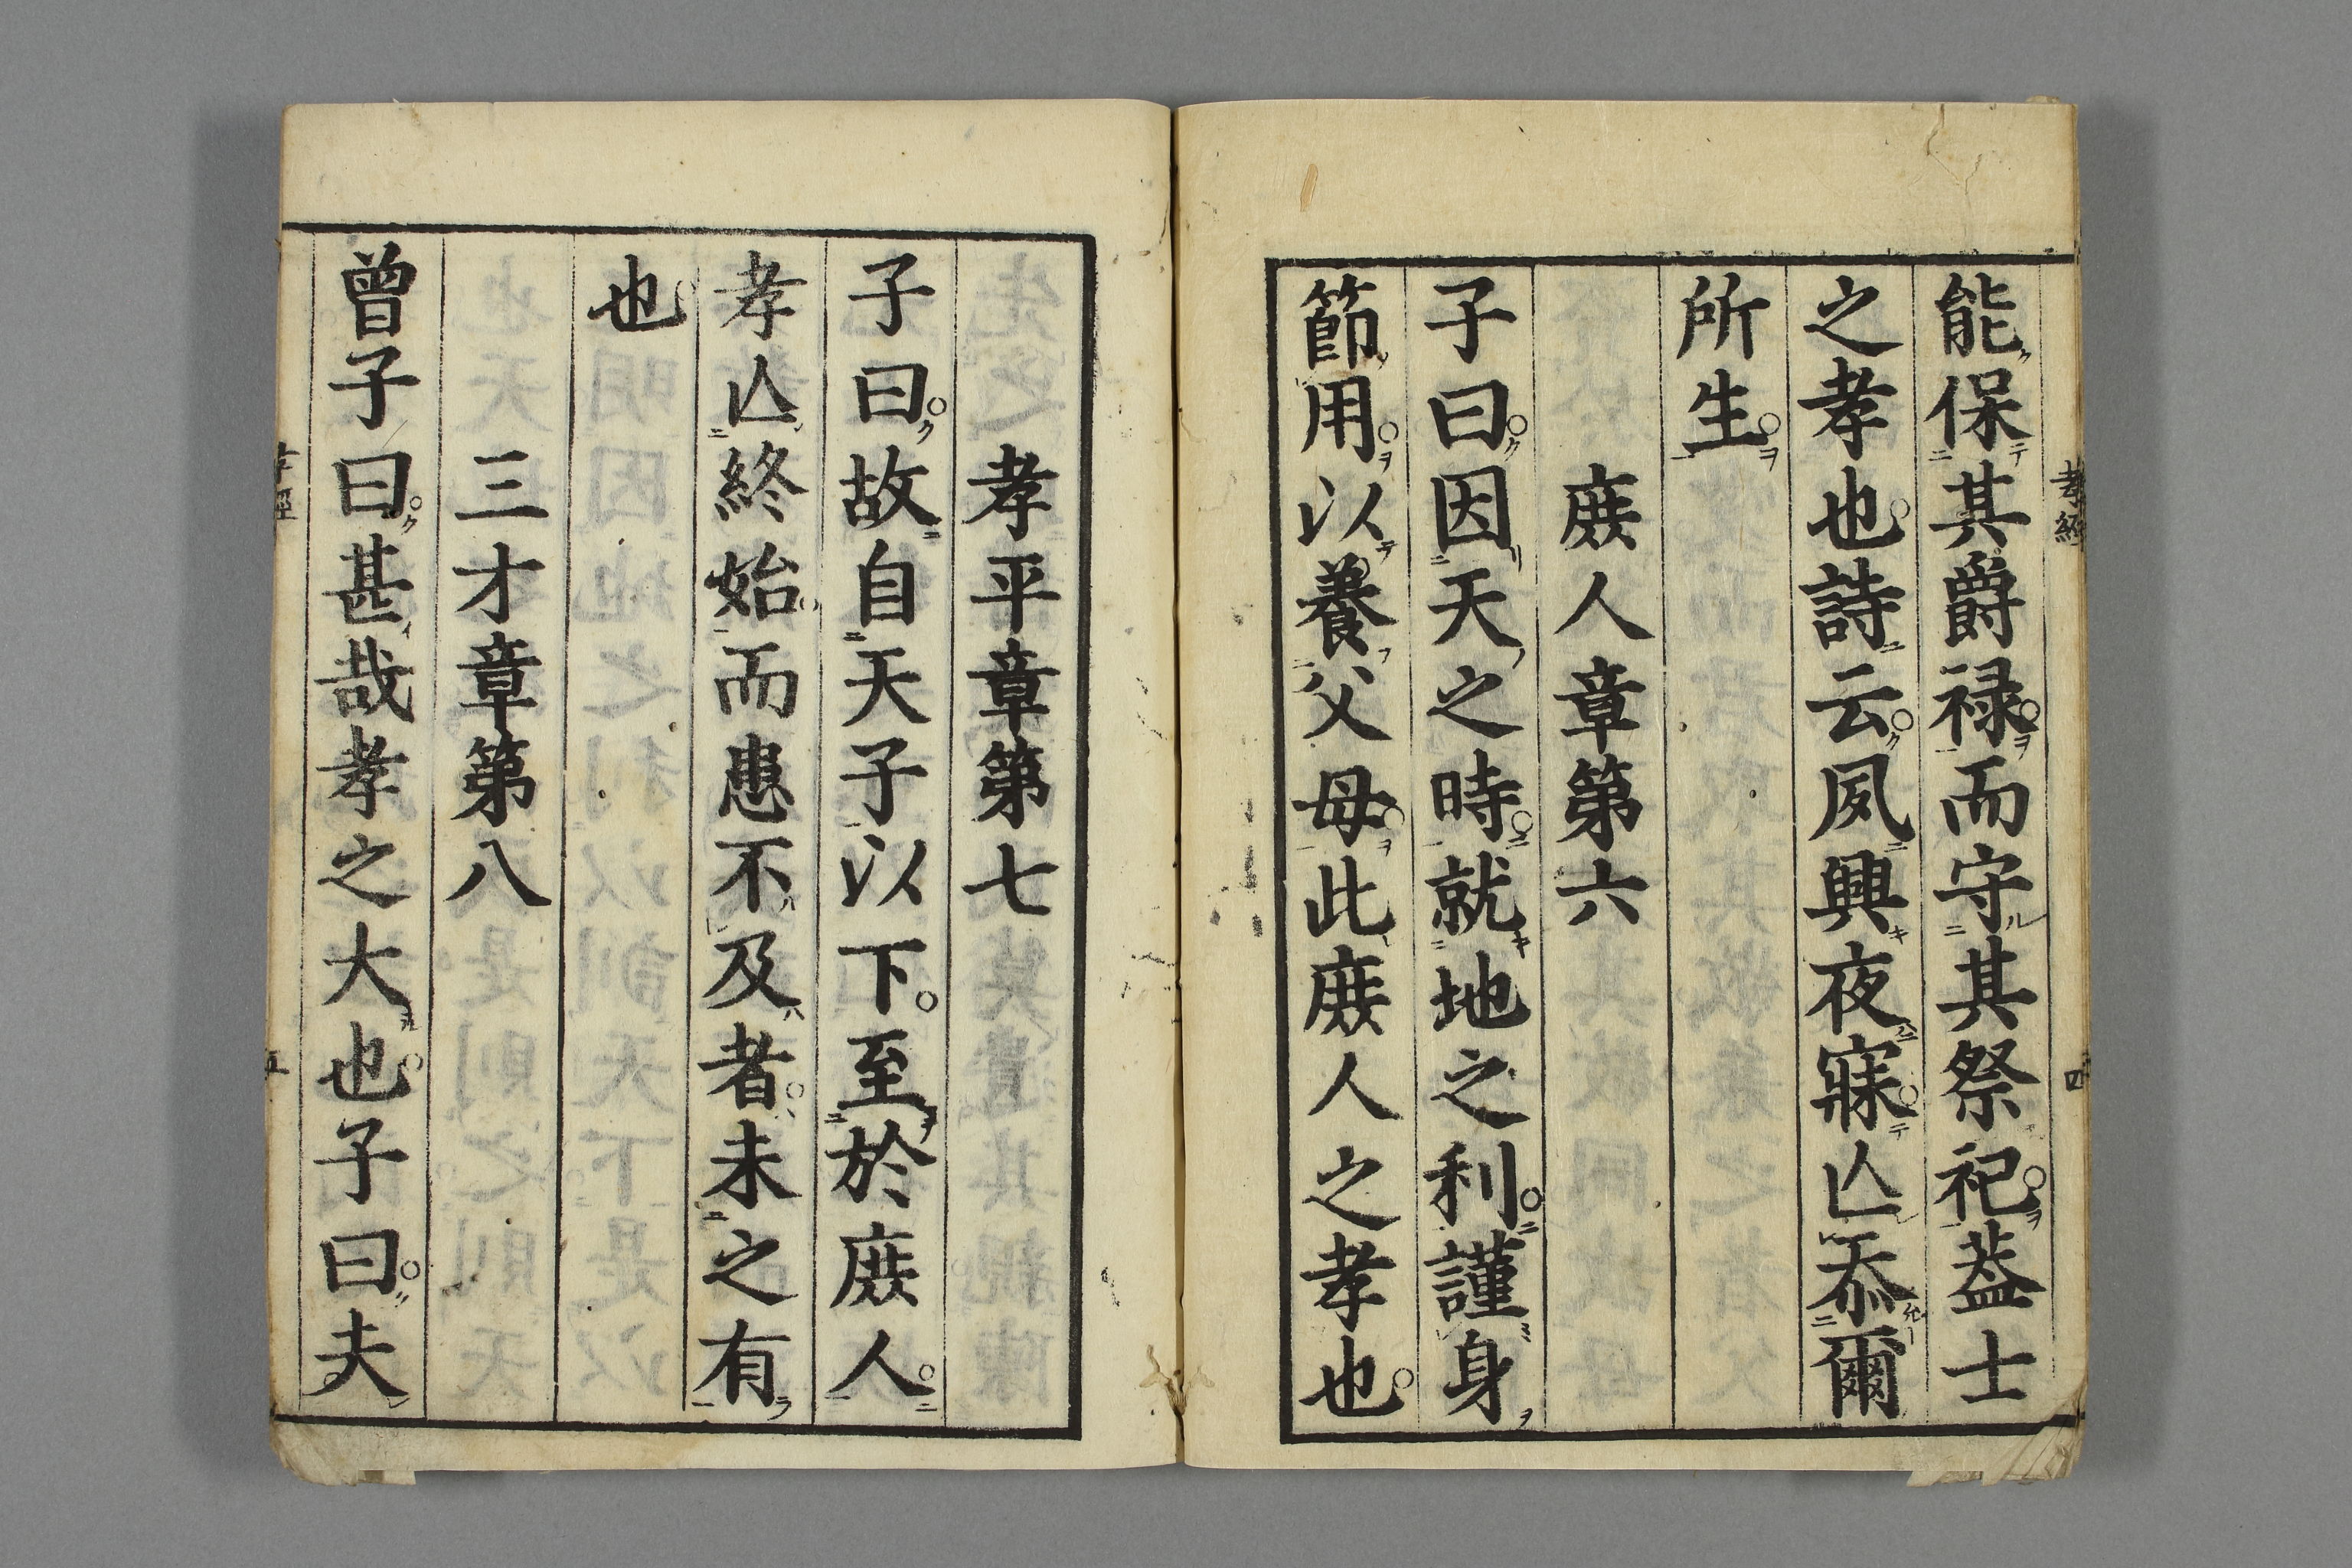 能保其爵禄而守其祭祀葢士
之孝也詩云夙興夜寐亾忝爾
所生
庻人章第六
子曰因天之時就地之利謹身
節用以養父母此庻人之孝也
孝經
四
孝平章第七
子曰故自天子以下至於庻人
孝亾終始而患不及者未之有
也
三才章第八
曾子曰甚哉孝之大也子曰夫